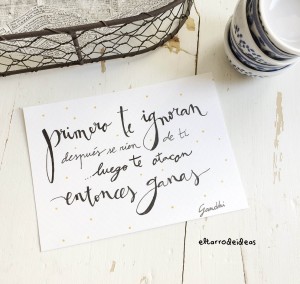 primero te ignoran
después se ríen de ti
luego te atacan
entonces ganas
Gandhi
eltarrodeideas